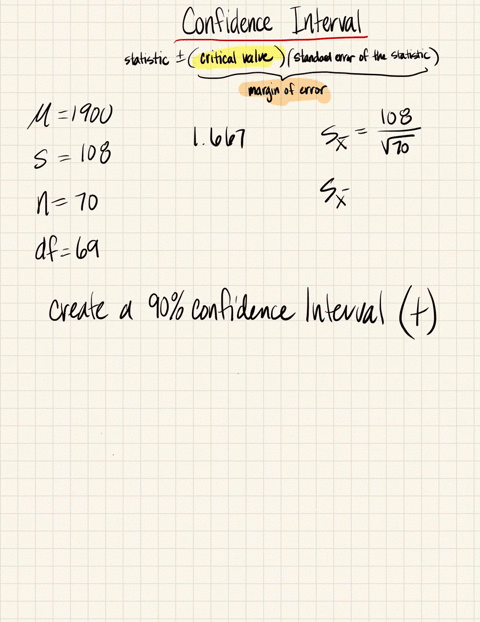 Confidence Interval
statistic ± (critical value)(standard error of the statistic)
margin of error
μ = 1900
1.667
s_x̄ = 108/√70
s = 108
s_x̄
n = 70
df = 69
create a 90% confidence Interval (t)